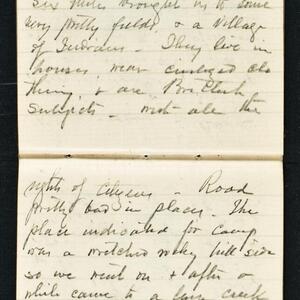 Six miles brought us to some
very pretty fields, & a village
of Indians - They live in
houses, wear civilized clo
thing, & are
subjects - with all the
rights of citizens - Road
pretty bad in places. The
place indicated for camp
was a wretched rocky hill side
so we went on & after a
while came to a fine creek